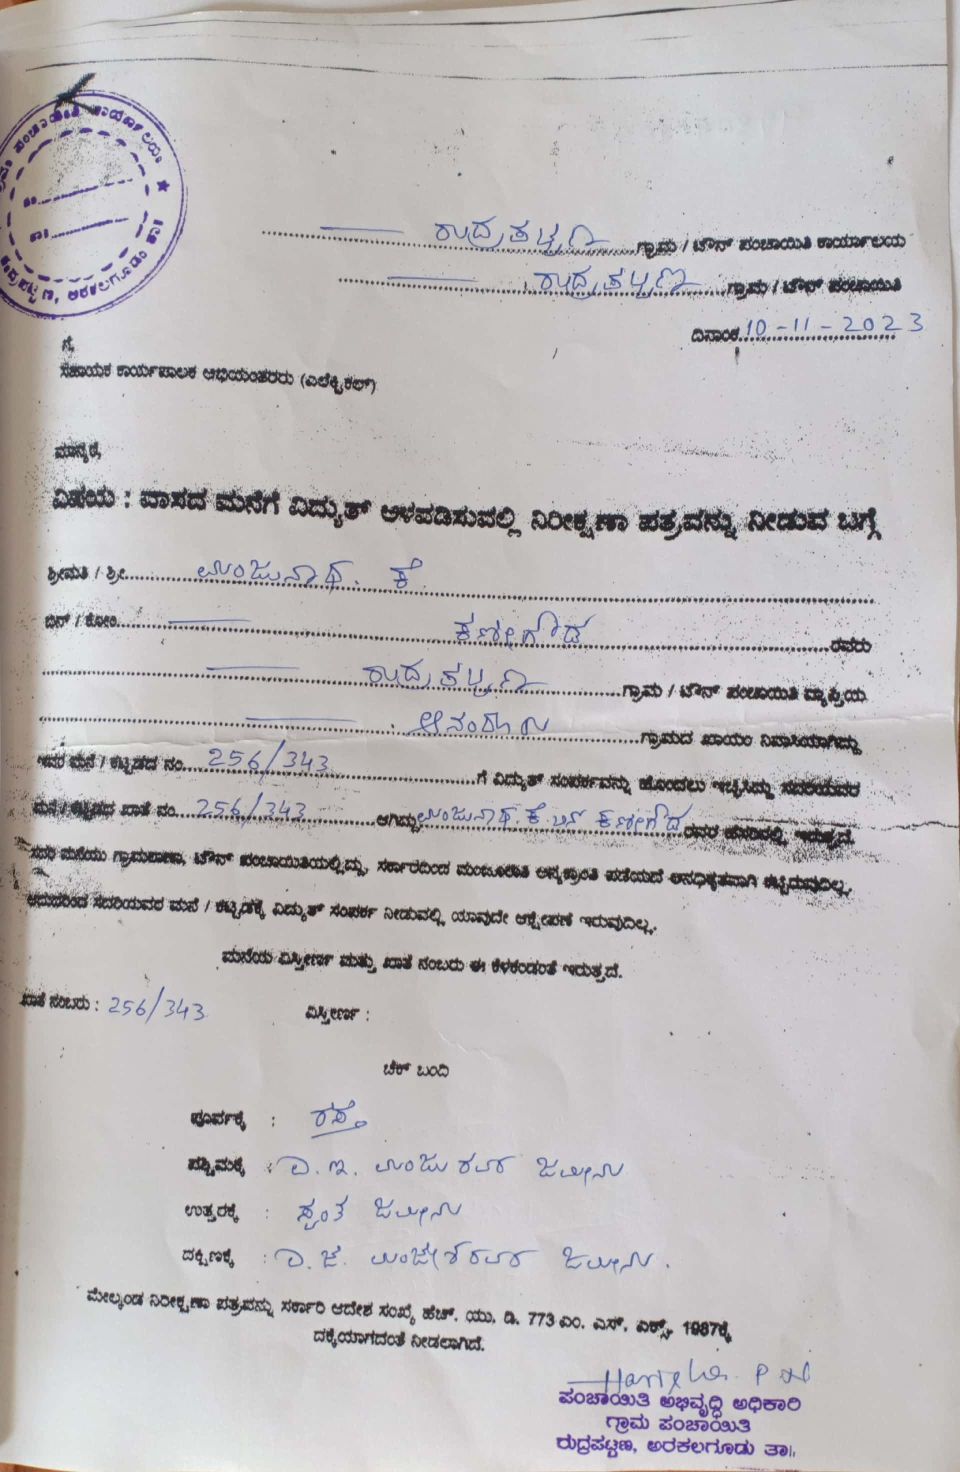 ಪಂಚಾಯಿತಿ ಕಾರ್ಯಾಲಯ ★
ರುದ್ರಪಟ್ಟಣ, ಅರಕಲಗೂಡು
ರುದ್ರಪಟ್ಟಣ ಗ್ರಾಮ / ಟೌನ್ ಪಂಚಾಯಿತಿ ಕಾರ್ಯಾಲಯ
ರುದ್ರಪಟ್ಟಣ ಗ್ರಾಮ / ಟೌನ್ ಪಂಚಾಯಿತಿ
ದಿನಾಂಕ 10-11-2023
ಗೆ,
ಸಹಾಯಕ ಕಾರ್ಯಪಾಲಕ ಅಭಿಯಂತರರು (ಎಲೆಕ್ಟ್ರಿಕಲ್)
ಮಾನ್ಯರೆ,
ವಿಷಯ : ವಾಸದ ಮನೆಗೆ ವಿದ್ಯುತ್ ಅಳವಡಿಸುವಲ್ಲಿ ನಿರೀಕ್ಷಣಾ ಪತ್ರವನ್ನು ನೀಡುವ ಬಗ್ಗೆ
ಶ್ರೀಮತಿ / ಶ್ರೀ ಮಂಜುನಾಥ. ಕೆ
ಬಿನ್ / ಕೋಂ ರವರು
ರುದ್ರಪಟ್ಟಣ ಗ್ರಾಮ / ಟೌನ್ ಪಂಚಾಯಿತಿ ವ್ಯಾಪ್ತಿಯ
ಗ್ರಾಮದ ಖಾಯಂ ನಿವಾಸಿಯಾಗಿದ್ದು
ಇವರ ಮನೆ / ಕಟ್ಟಡದ ನಂ. 256/343 ಗೆ ವಿದ್ಯುತ್ ಸಂಪರ್ಕವನ್ನು ಹೊಂದಲು ಇಚ್ಛಿಸಿದ್ದು ಸದರಿಯವರ
ಮನೆ / ಕಟ್ಟಡದ ಖಾತೆ ನಂ. 256/343 ಆಗಿದ್ದು ಮಂಜುನಾಥ ಕೆ ಬಿನ್ ರವರ ಹೆಸರಿನಲ್ಲಿ ಇರುತ್ತದೆ.
ಸದರಿ ಮನೆಯು ಗ್ರಾಮಠಾಣಾ, ಟೌನ್ ಪಂಚಾಯಿತಿಯಲ್ಲಿದ್ದು, ಸರ್ಕಾರದಿಂದ ಮಂಜೂರಾತಿ ಅನ್ಯಕ್ರಾಂತಿ ಪಡೆಯದೆ ಅನಧಿಕೃತವಾಗಿ ಕಟ್ಟಿರುವುದಿಲ್ಲ.
ಆದುದರಿಂದ ಸದರಿಯವರ ಮನೆ / ಕಟ್ಟಡಕ್ಕೆ ವಿದ್ಯುತ್ ಸಂಪರ್ಕ ನೀಡುವಲ್ಲಿ ಯಾವುದೇ ಆಕ್ಷೇಪಣೆ ಇರುವುದಿಲ್ಲ.
ಮನೆಯ ವಿಸ್ತೀರ್ಣ ಮತ್ತು ಖಾತೆ ನಂಬರು ಈ ಕೆಳಕಂಡಂತೆ ಇರುತ್ತದೆ.
ಖಾತೆ ನಂಬರು : 256/343 ವಿಸ್ತೀರ್ಣ :
ಚೆಕ್ ಬಂದಿ
ಪೂರ್ವಕ್ಕೆ : ರಸ್ತೆ
ಪಶ್ಚಿಮಕ್ಕೆ : ಜಮೀನು
ಉತ್ತರಕ್ಕೆ : ಸ್ವಂತ ಜಮೀನು
ದಕ್ಷಿಣಕ್ಕೆ : ಜಮೀನು.
ಮೇಲ್ಕಂಡ ನಿರೀಕ್ಷಣಾ ಪತ್ರವನ್ನು ಸರ್ಕಾರಿ ಆದೇಶ ಸಂಖ್ಯೆ ಹೆಚ್. ಯು. ಡಿ. 773 ಎಂ. ಎಸ್. ಎಕ್ಸ್. 1987ಕ್ಕೆ
ದಕ್ಕೆಯಾಗದಂತೆ ನೀಡಲಾಗಿದೆ.
ಪಂಚಾಯಿತಿ ಅಭಿವೃದ್ಧಿ ಅಧಿಕಾರಿ
ಗ್ರಾಮ ಪಂಚಾಯಿತಿ
ರುದ್ರಪಟ್ಟಣ, ಅರಕಲಗೂಡು ತಾ||